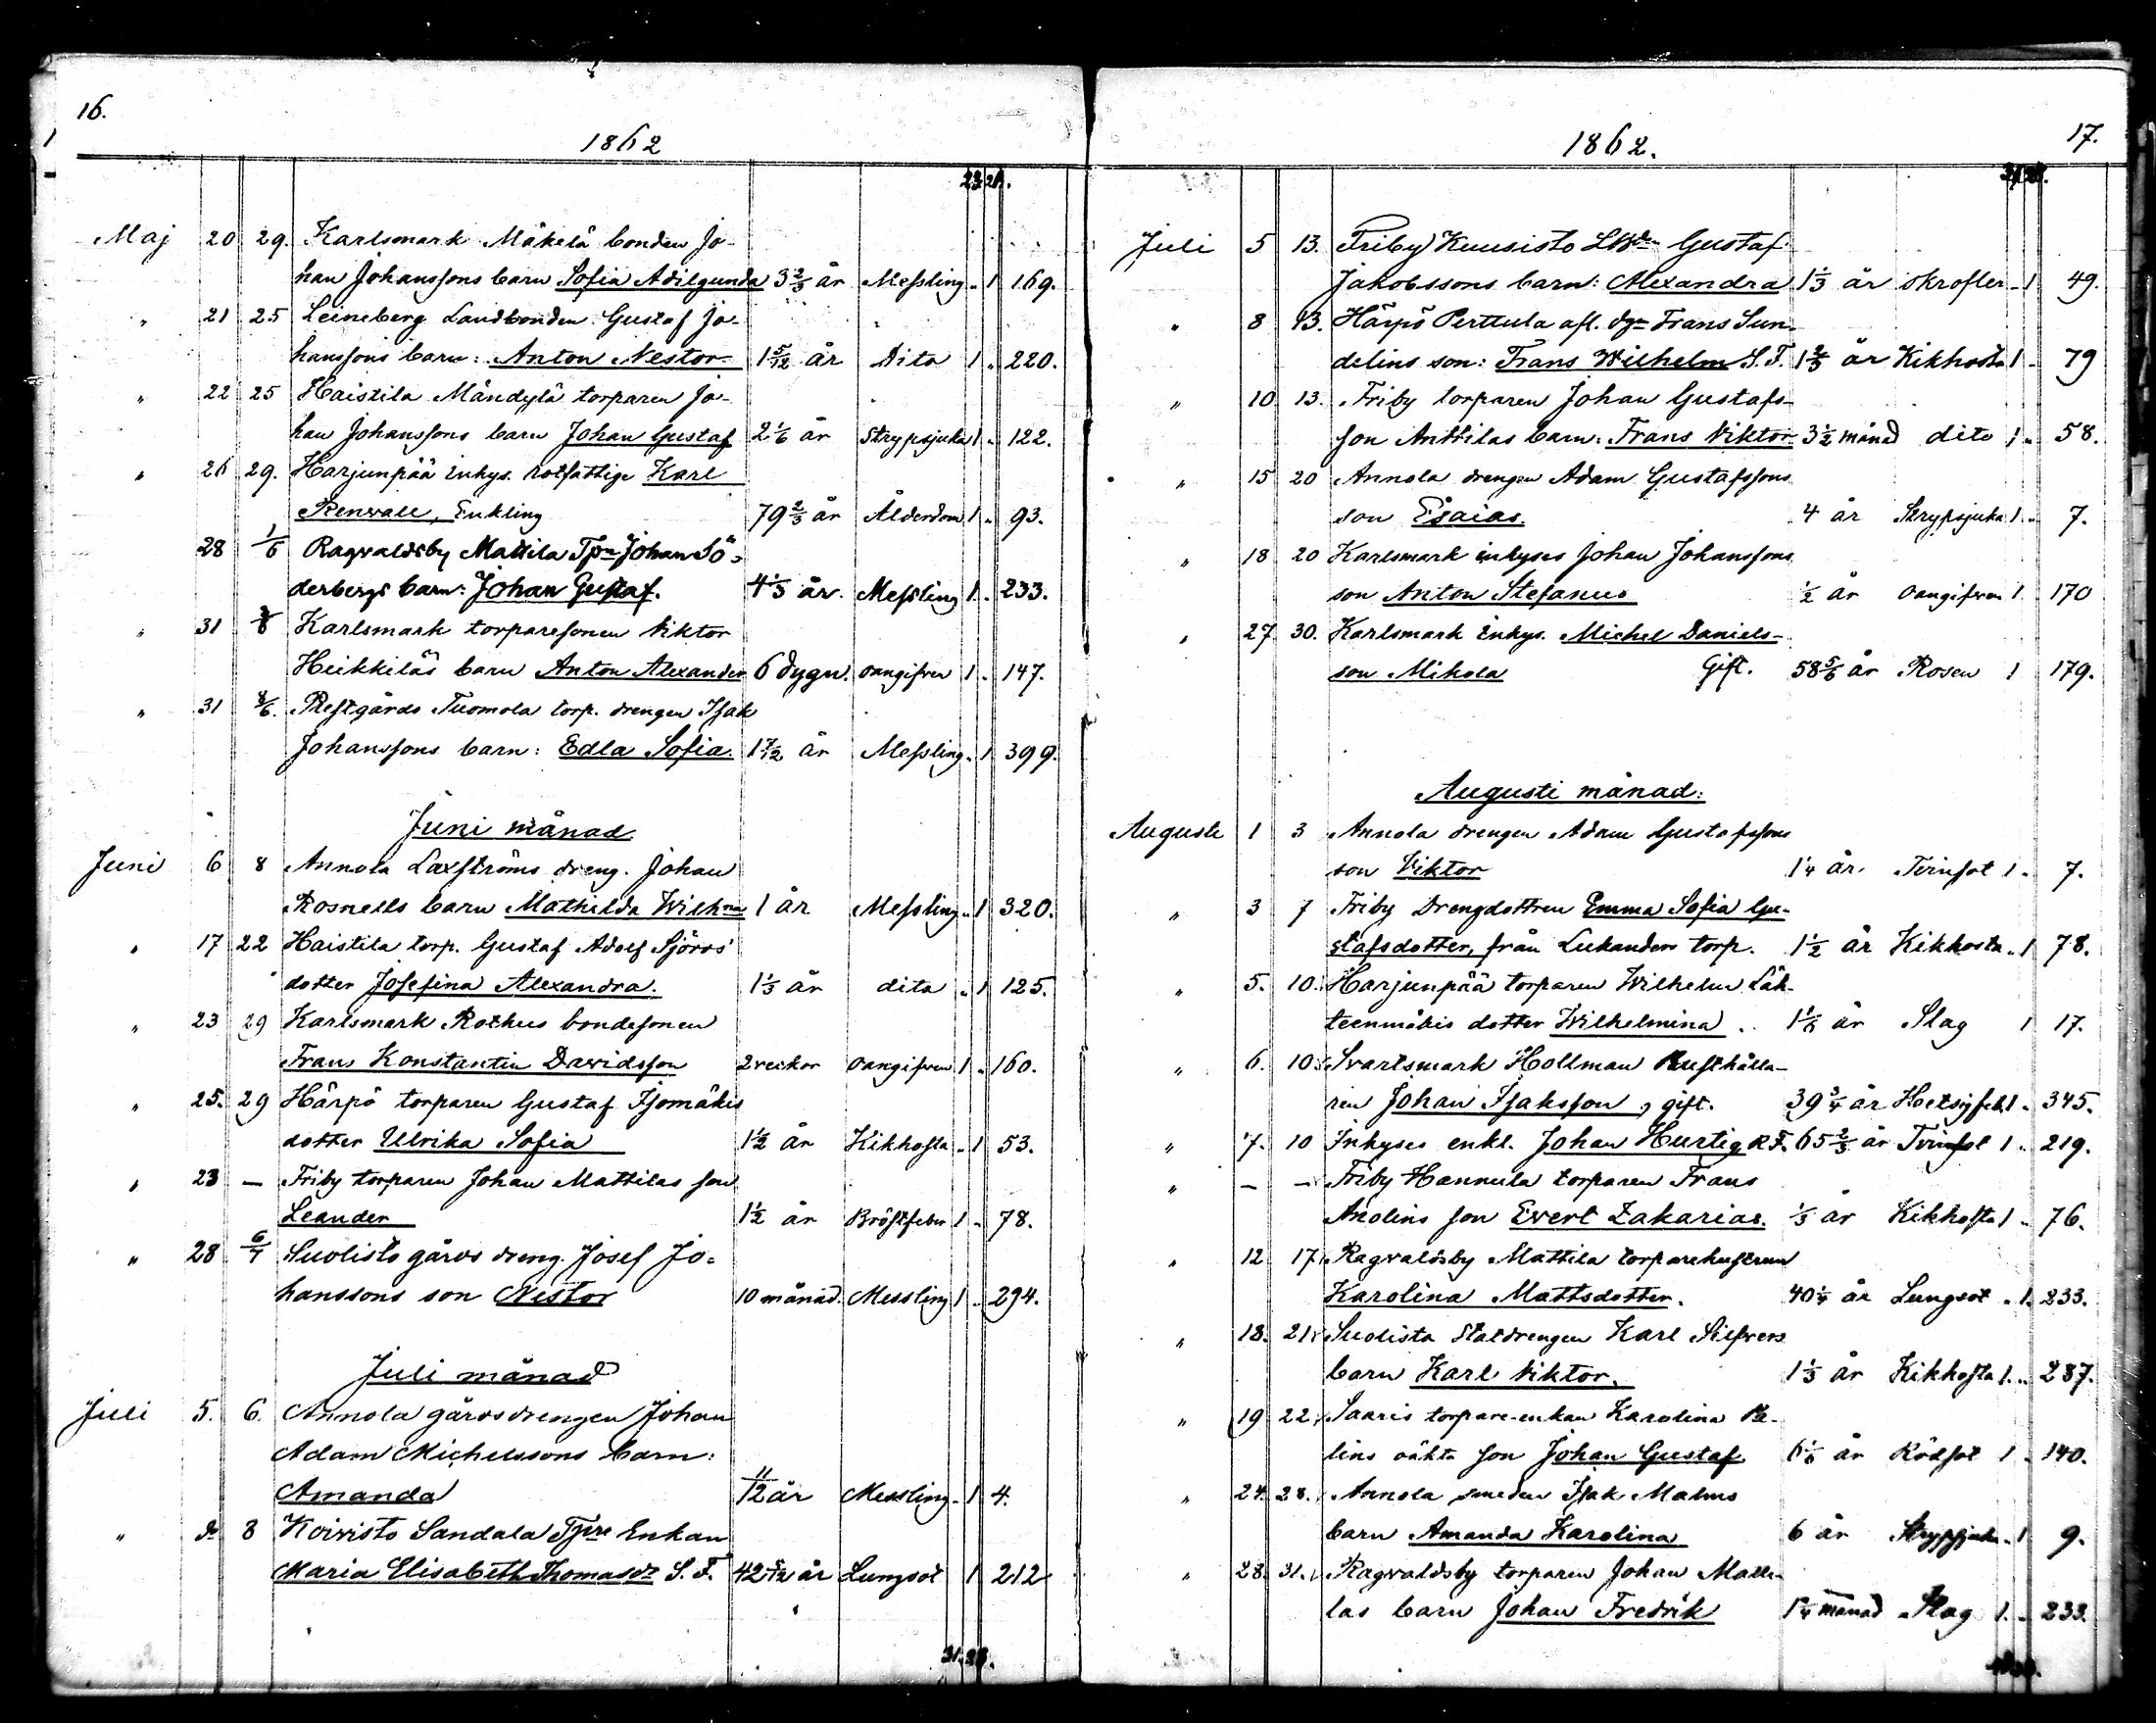 16.
1862
23 24.
Maj 20 29. Karlsmark Mäkelä bonden Jo-
han Johanssons barn Sofia Adilgunda 3 2/3 år Messling „ 1 169.
„ 21 25 Leineberg Landbonden Gustaf Jo-
hanssons barn: Anton Nestor 1 5/12 år Dito 1 „ 220.
„ 22 25 Haistila Mändylä torparen Jo-
han Johanssons barn Johan Gustaf 2 1/6 år Strypsjuka 1 „ 122.
„ 26 29. Harjunpää inhys. rotfattige Karl
Renwall, Enkling 79 2/3 år Ålderdom 1 „ 93.
28 1/6 Ragvaldsby Mattila Tpn Johan Sö-
derbergs barn: Johan Gustaf. 4 1/3 år. Messling 1 „ 233.
„ 31 Karlsmark torparesonen Viktor
Heikkiläs barn Anton Alexander 6 dygn. oangifven 1 „ 147.
„ 31 8/6. Prestgårds Tuomola torp. drengen Isak
Johanssons barn: Edla Sofia. 1 7/12 år Messling „ 1 399.
Juni månad
Juni 6 8 Annola Laxströms dreng. Johan
Rosnells barn Mathilda Wilhna 1 år Messling „ 1 320.
„ 17 22 Haistila torp. Gustaf Adolf Sjöros
dotter Josefina Alexandra. 1 1/3 år dito „ 1 125.
„ 23 29 Karlsmark Rothus bondesonen
Frans Konstantin Davidsson 2 veckor oangifven 1 „ 160.
„ 25. 29 Härpö torparen Gustaf Isomäkis
dotter Ulrika Sofia 1 1/2 år Kikhosta „ 1 53.
„ 23 — Friby torparen Johan Mattilas son
Leander 1 1/2 år Bröstfeber 1 „ 78.
„ 28 6/7 Suolisto gårds dreng. Josef Jo-
hanssons son Nestor 10 månad. Messling 1 „ 294.
Juli månad
Juli 5. 6. Annola gårdsdrengen Johan
Adam Michelssons barn:
Amanda 11/12 år Messling „ 1 4.
„ do 8 Koivisto Sandala Tpre Enkan
Maria Elisabeth Thomasdr S. F. 42 5/12 år Lungsot 1 212
31. 28.
17.
1862.
31 28.
Juli 5 13. Friby Kuusisto Gustaf
Jakobssons barn: Alexandra 1 1/3 år skrofler „ 1 49.
„ 8 13. Härpö Perttula afl. dgn Frans Sun-
delins son: Frans Wilhelm S. F. 1 2/3 år Kikhosta 1 „ 79
„ 10 13. Friby torparen Johan Gustafs-
son Anttilas barn: Frans Viktor 3 1/2 månad dito 1 „ 58.
„ 15 20 Annola drengen Adam Gustafssons
son Esaias. 4 år Strypsjuka 1 „ 7.
„ 18 20 Karlsmark inhyses Johan Johanssons
son Anton Stefanus 1/2 år oangifven 1 170
„ 27 30. Karlsmark inhys. Michel Daniels-
son Mikola Gift. 58 5/6 år Rosen 1 179.
Augusti månad.
Augusti 1 3 Annola drengen Adam Gustafssons
son Viktor 1 1/4 år. Tvinsot 1 „ 7.
„ 3 7 Friby Drengdottren Emma Sofia Gu-
stafsdotter, från Lukanders torp. 1 1/2 år Kikhosta „ 1 78.
„ 5. 10. Harjunpää torparen Wilhelm Läh-
teenmäkis dotter Wilhelmina 1 1/6 år Slag 1 17.
„ 6. 10. Svartsmark Hollman Rusthålla-
ren Johan Isaksson, gift. 39 3/4 år Hetsigfeb. 1 „ 345.
„ 7. 10 Inhyses enkl. Johan Hurtig R F. 65 2/3 år Tvinsot 1 „ 219.
„ — — Friby Hannula torparen Frans
Anolins son Evert Zakarias. 1/3 år Kikhosta 1 „ 76.
„ 12 17 Ragvaldsby Mattila torparehustrun
Karolina Mattsdotter. 40 1/4 år Lungsot „ 1. 233.
„ 18. 21 Suolista Statdrengen Karl Silfvers
barn Karl Viktor. 1 1/3 år Kikhosta 1. „ 287.
„ 19 22 Saaris torpare-enkan Karolina
lins oäkta son Johan Gustaf. 6 1/6 år Rödsot 1 „ 140.
„ 24. 28. Annola smeden Isak Malms
barn Amanda Karolina 6 år Strypsjuka „ 1 9.
„ 28. 31. Ragvaldsby torparen Johan Matti-
las barn Johan Fredrik 1 1/4 månad Slag 1. „ 233.